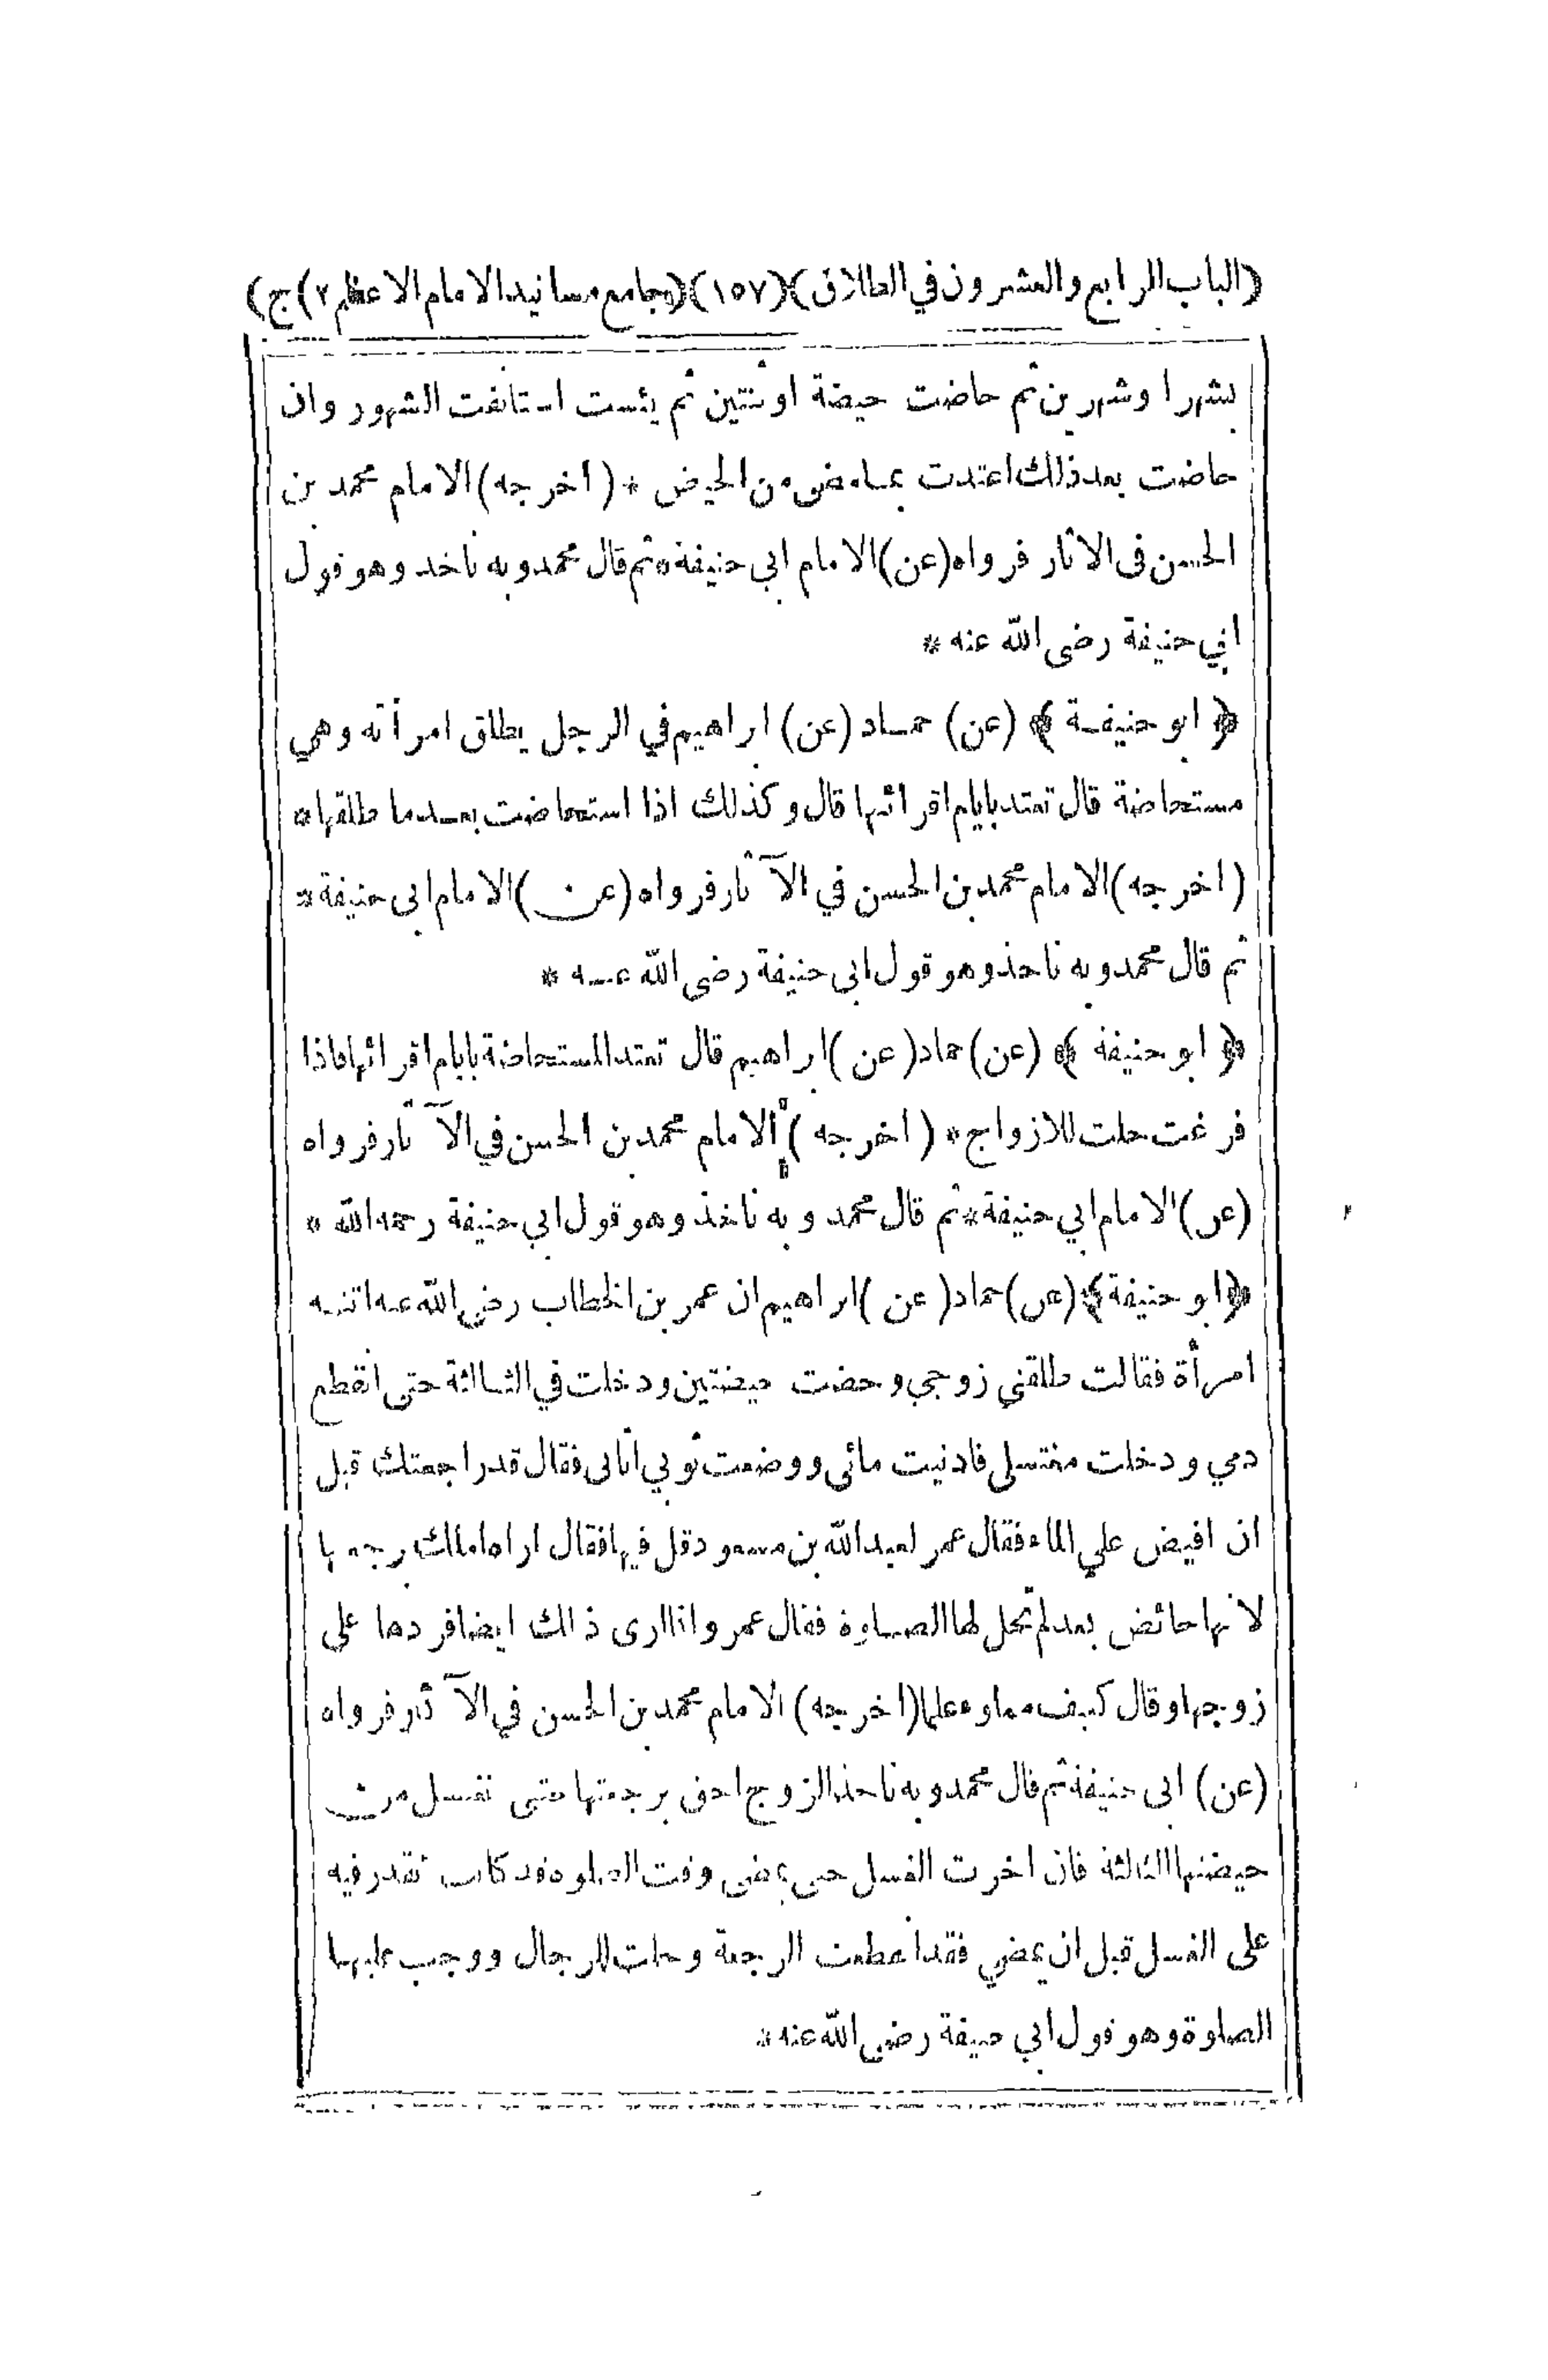 (الباب الرابع والعشرون في الطلاق)(١٥٧)(جامع مسانيد الامام الاعظم ٢)ج)
بشهرا وشهرين ثم حاضت حيضة او ثنتين ثم يئست استانفت الشهور وان
حاضت بعد ذلك اعتدت بما مضى من الحيض * (اخرجه) الامام محمد بن
الحسن فى الاثار فرواه (عن) الامام ابي حنيفة * ثم قال محمد وبه ناخذ وهو قول
ابي حنيفة رضى الله عنه *
﴿ ابو حنيفة ﴾ (عن) حماد (عن) ابراهيم في الرجل يطلق امرأته وهي
مستحاضة قال تعتد بايام اقرائها قال وكذلك اذا استحاضت بعد ما طلقها *
(اخرجه) الامام محمد بن الحسن في الآثار فرواه (عن) الامام ابى حنيفة *
ثم قال محمد وبه ناخذ وهو قول ابى حنيفة رضى الله عنه *
﴿ ابو حنيفة ﴾ (عن) حماد (عن) ابراهيم قال تعتد المستحاضة بايام اقرائها فاذا
فرغت حلت للازواج * (اخرجه) الامام محمد بن الحسن في الآثار فرواه
(عن) الامام ابي حنيفة * ثم قال محمد وبه ناخذ وهو قول ابي حنيفة رحمه الله *
﴿ ابو حنيفة ﴾ (عن) حماد (عن) ابراهيم ان عمر بن الخطاب رضى الله عنه اتته
امرأة فقالت طلقني زوجي وحضت حيضتين ودخلت في الثالثة حتى انقطع
دمي ودخلت مغتسلي فادنيت مائى ووضعت ثوبي اتانى فقال قد راجعتك قبل
ان افيض علي الماء فقال عمر لعبد الله بن مسعود قل فيها فقال اراه املك برجعتها
لانها حائض بعد لم تحل لها الصلوة فقال عمر وانا ارى ذالك ايضا فردها على
زوجها وقال كنيف مملوء علما (اخرجه) الامام محمد بن الحسن في الآثار فرواه
(عن) ابى حنيفة ثم قال محمد وبه ناخذ الزوج احق برجعتها حتى تغتسل من
حيضتها الثالثة فان اخرت الغسل حتى يمضى وقت الصلوة قد كانت تقدر فيه
على الغسل قبل ان يمضي فقد انقطعت الرجعة وحلت للرجال ووجب عليها
الصلوة وهو قول ابي حنيفة رضى الله عنه *